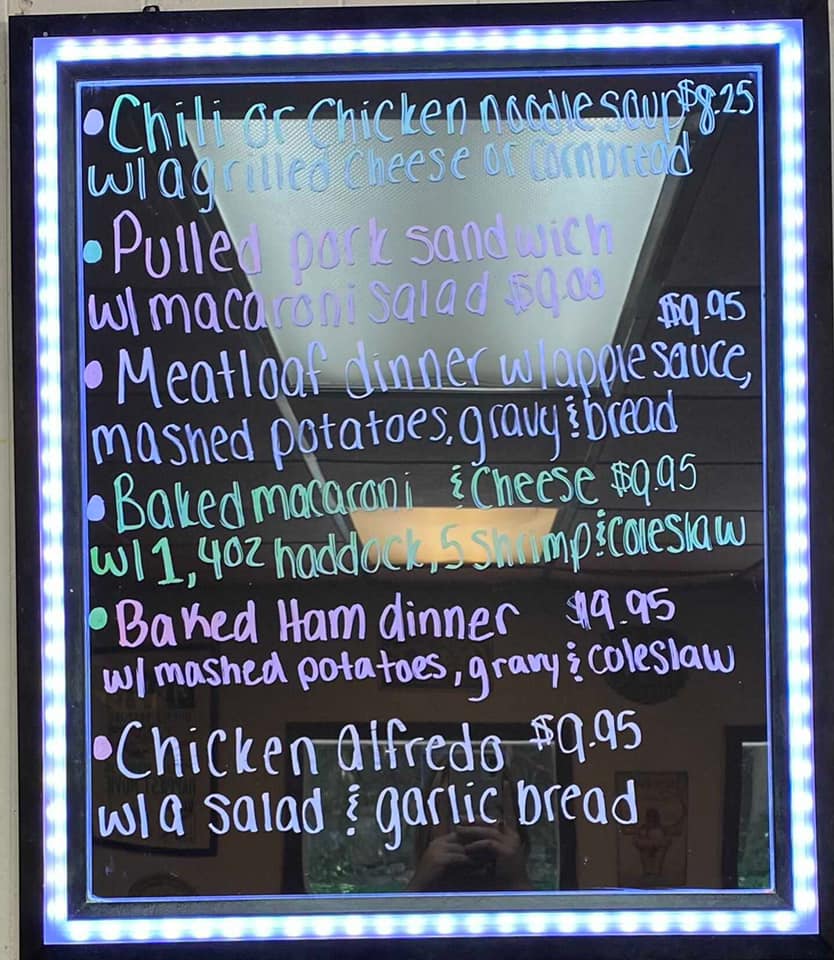 • Chili or Chicken noodle soup $8.25
w/ a grilled cheese or cornbread
• Pulled pork sandwich
w/ macaroni salad $9.00
$9.95
• Meatloaf dinner w/ apple sauce,
mashed potatoes, gravy & bread
• Baked macaroni & Cheese $9.95
w/ 1, 4oz haddock, 5 shrimp & coleslaw
• Baked Ham dinner $9.95
w/ mashed potatoes, gravy & coleslaw
• Chicken alfredo $9.95
w/ a salad & garlic bread